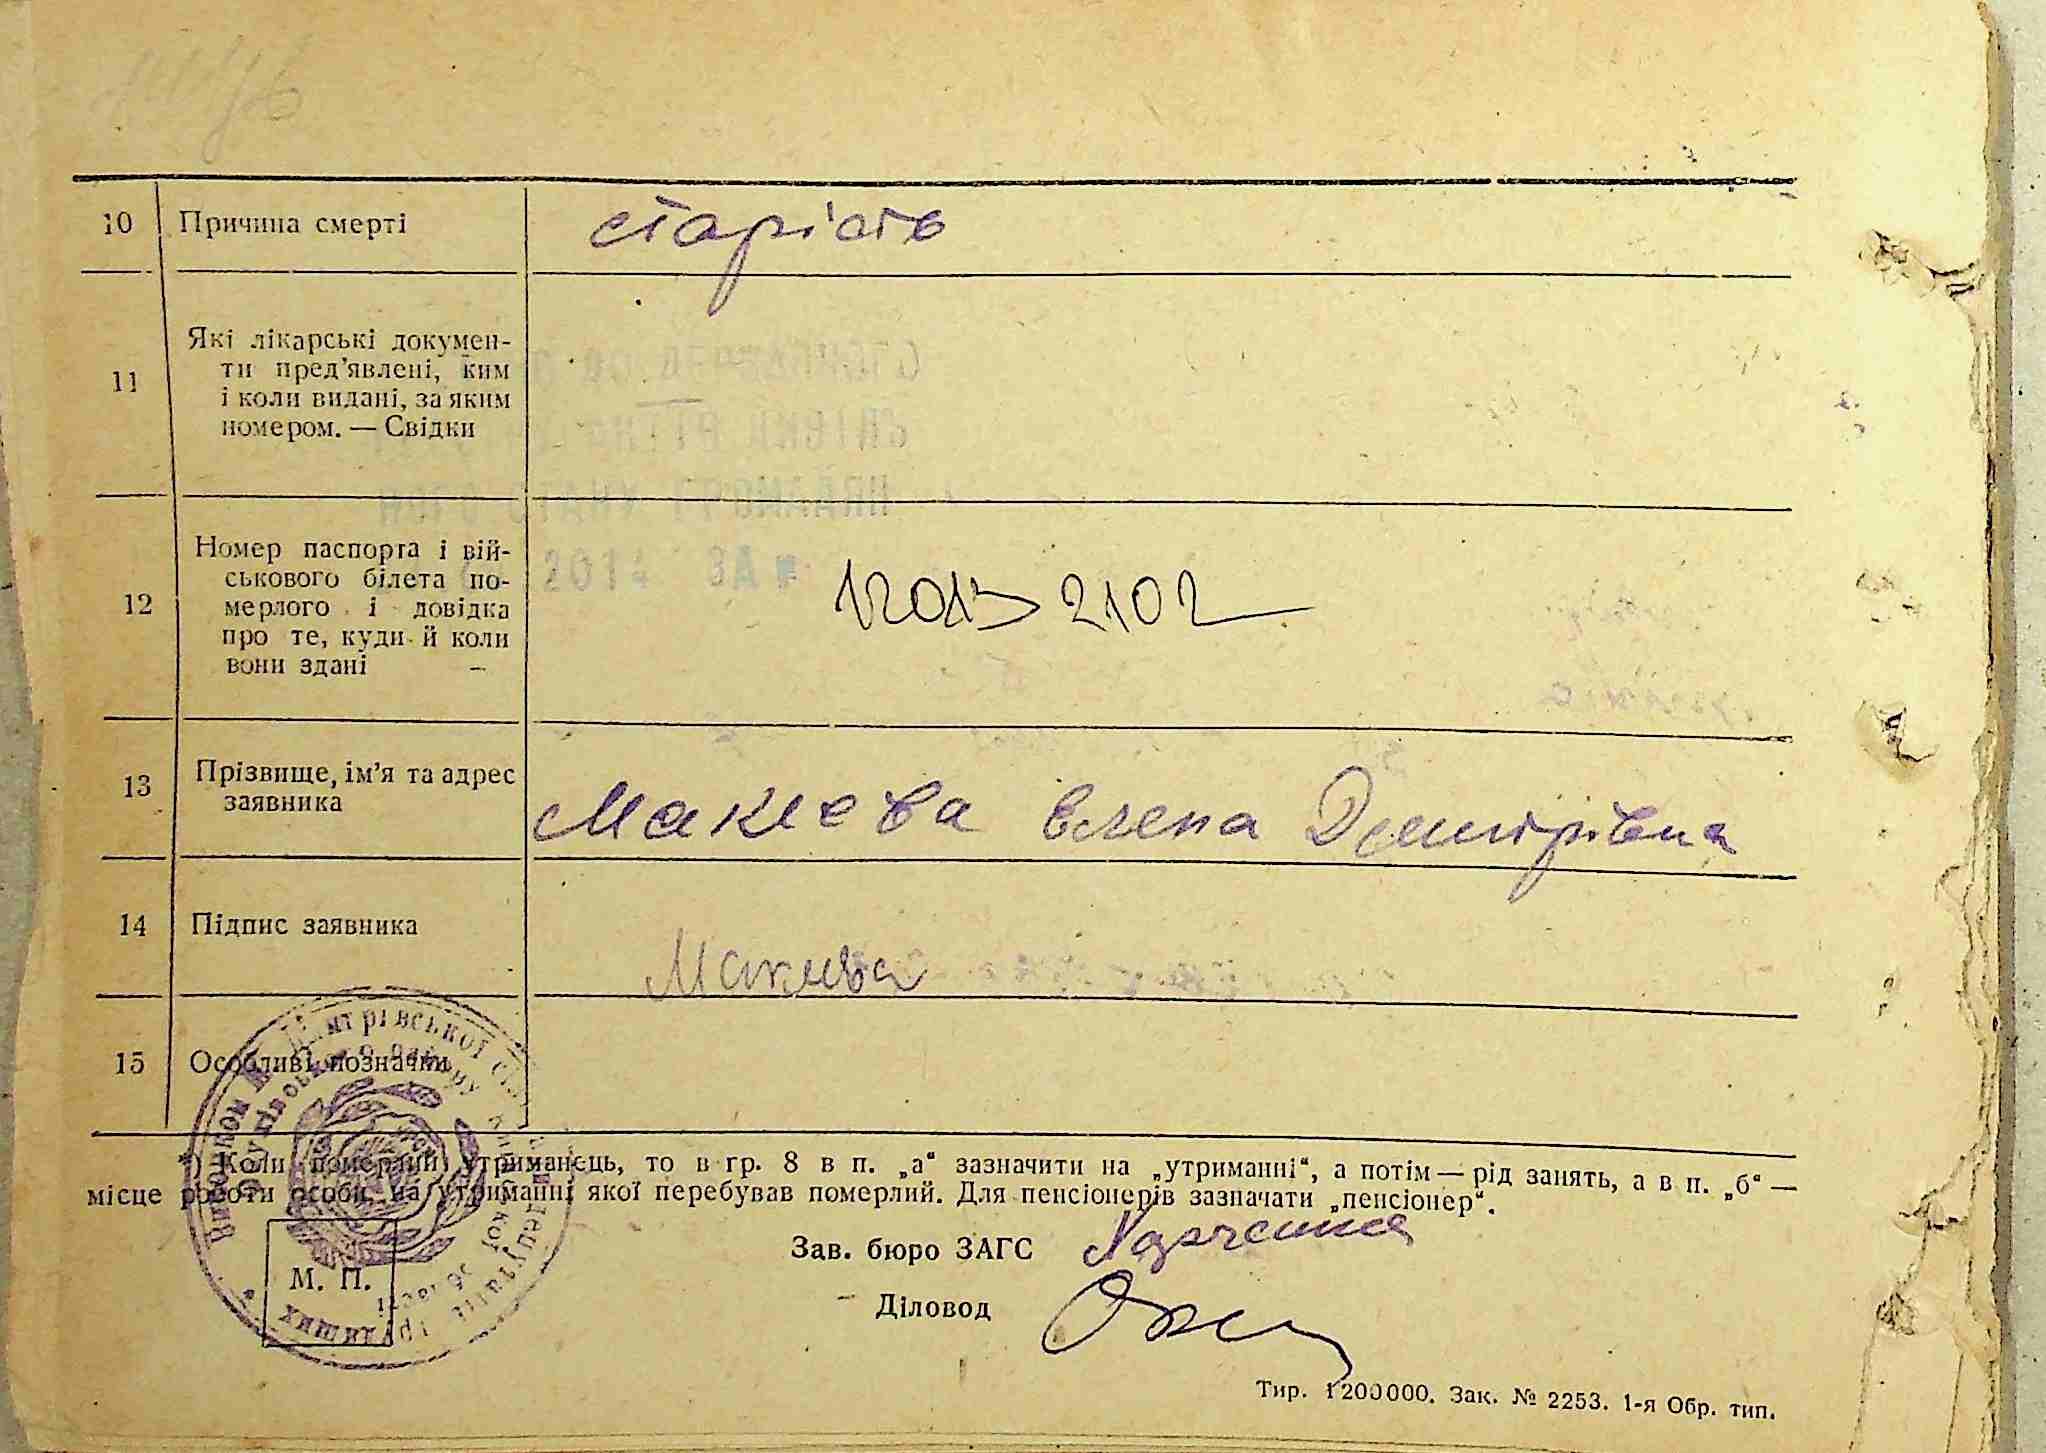 10 Причина смерті старість
11 Які лікарські докумен-
ти пред'явлені, ким
і коли видані, за яким
номером. — Свідки
12 Номер паспорта і вій-
ськового білета по-
мерлого і довідка
про те, куди й коли
вони здані
2102
13 Прізвище, ім'я та адрес
заявника
Макеєва Олена Дмитрівна
14 Підпис заявника
Макеева
15 Особливі позначки
*) Коли померлий утриманець, то в гр. 8 в п. „а“ зазначити на „утриманні“, а потім — рід занять, а в п. „б“ —
місце роботи особи, на утриманні якої перебував померлий. Для пенсіонерів зазначати „пенсіонер“.
Зав. бюро ЗАГС
Діловод
М. П.
Тир. 1200000. Зак. № 2253. 1-я Обр. тип.